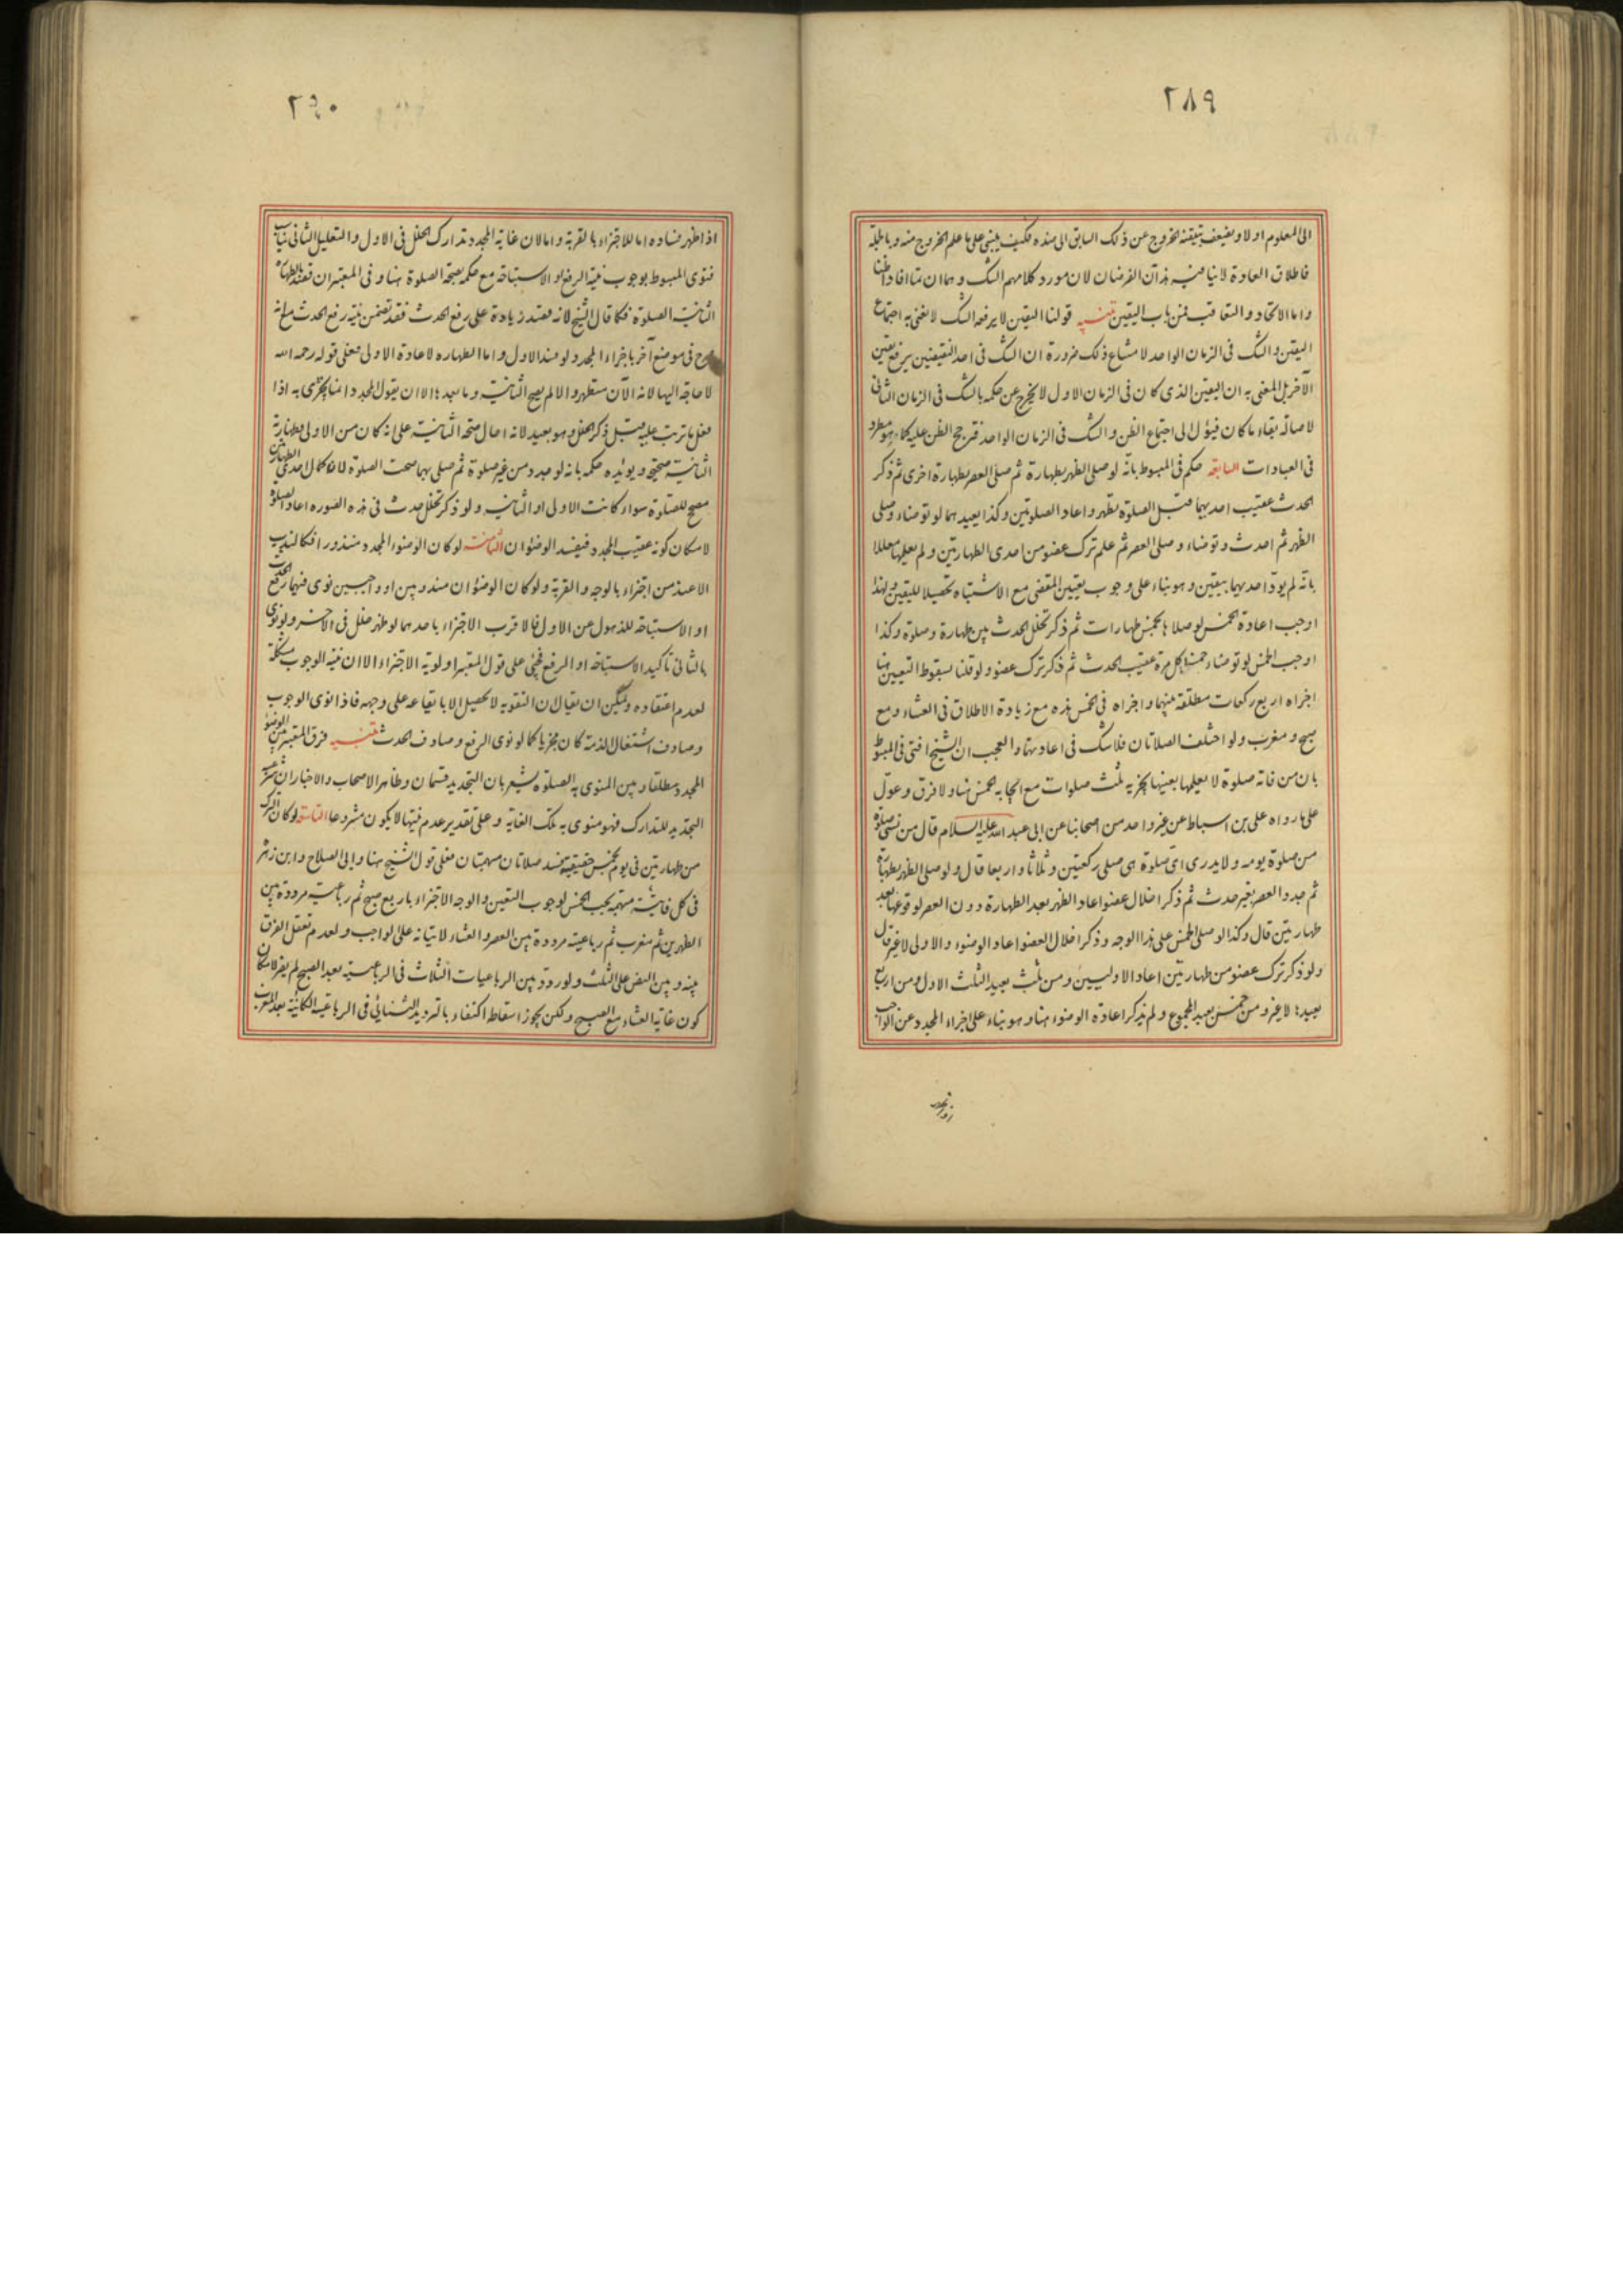 ٢٨٩
الى المعلوم اولا ويضعف بتيقنه الخروج عن ذلك السابق الى ضده فكيف يبنى على ما علم الخروج منه وبالجملة
فاطلاق العادة لا ينافيه هذان الفرضان لان مورد كلامهم الشك وهما ان تما افادا ظنا
واما الاتحاد والتعاقب فمن باب اليقين تنبيه قولنا اليقين لا يرفعه الشك لا نعنى به اجتماع
اليقين والشك فى الزمان الواحد لامتناع ذلك ضرورة ان الشك فى احد النقيضين يرفع يقين
الآخر بل المعنى به ان اليقين الذى كان فى الزمان الاول لا يخرج عن حكمه بالشك فى الزمان الثانى
لاصالة بقاء ما كان فيؤل الى اجتماع الظن والشك فى الزمان الواحد فترجح الظن عليه كما هو مطرد
فى العبادات السابعة حكم فى المبسوط بانه لو صلى الظهر بطهارة ثم صلى العصر بطهارة اخرى ثم ذكر
الحدث عقيب احديهما قبل الصلوة تطهر واعاد الصلوتين وكذا يعيدهما لو توضاء وصلى
الظهر ثم احدث وتوضاء وصلى العصر ثم علم ترك عضو من احدى الطهارتين ولم يعلمها معللا
بانه لم يؤد احديهما بيقين وهو بناء على وجوب تعيين المقضى مع الاشتباه تحصيلا لليقين ولهذا
اوجب اعادة الخمس لو صلاها بخمس طهارات ثم ذكر تخلل الحدث بين طهارة وصلوة وكذا
اوجب الخمس لو توضاء خمسا لكل مرة عقيب الحدث ثم ذكر ترك عضو ولو قلنا بسقوط التعيين هنا
اجزاه اربع ركعات مطلقة بينهما واجزاه فى الخمس هذه مع زيادة الاطلاق فى العشاء ومع
صبح ومغرب ولو اختلف الصلاتان فلا شك فى اعادتهما والعجب ان الشيخ افتى فى المبسوط
بان من فاته صلوة لا يعلمها بعينها يجزيه ثلث صلوات مع ايجابه الخمس هنا ولا فرق وعول
على ما رواه على بن اسباط عن غير واحد من اصحابنا عن ابى عبد الله عليه السلام قال من نسى صلوة
من صلوة يومه ولا يدرى اى صلوة هى صلى ركعتين وثلاثا واربعا قال ولو صلى الظهر بطهارة
ثم جدد العصر بغير حدث ثم ذكر اخلال عضو اعاد الظهر بعد الطهارة دون العصر لوقوعها بعد
طهارتين قال وكذا لو صلى الخمس على هذا الوجه وذكر اخلال العضو اعاد الوضوء والاولى لا غير قال
ولو ذكر ترك عضو من طهارتين اعاد الاوليين ومن ثلث يعيد الثلث الاول ومن اربع
يعيدها لا غير ومن خمس يعيد المجموع ولم يذكر اعادة الوضوء هنا وهو بناء على اجزاء المجدد عن الواجب
٢٩٠
اذا ظهر فساده اما للاجتزاء بالقربة واما لان غاية المجدد تدارك الخلل فى الاول والتعليل الثانى يناسب
فتوى المبسوط بوجوب نية الرفع او الاستباحة مع حكمه بصحة الصلوة هنا وفى المعتبر ان قصد بالطهارة
الثانية الصلوة فكما قال الشيخ لانه قصد زيادة على رفع الحدث فقد تضمن نيته رفع الحدث مع انه
صرح فى موضع آخر باجزاء المجدد لو فسد الاول واما الطهارة لاعادة الاولى فعلى قوله رحمه الله
لا حاجة اليها لانه الآن متطهر والا لم يصح الثانية وما بعدها الا ان يقول المجدد انما يجزى به اذا
فعل ما ترتب عليه قبل ذكر الخلل وهو بعيد لانه احال صحة الثانية على انه كان من الاولى فطهارته
الثانية صحيحة ويؤيده حكمه بانه لو جدد من غير صلوة ثم صلى بهما صحت الصلوة لانا كمال احدى الطهارتين
مصحح للصلوة سواء كانت الاولى او الثانية ولو ذكر تخلل حدث فى هذه الصورة اعاد الصلوة
لامكان كونه عقيب المجدد فيفسد الوضوءان الثامنة لو كان الوضوء المجدد منذورا فكالندب
الا عند من اجتزاء بالوجه والقربة ولو كان الوضوءان مندوبين او واجبين نوى فيهما رفع الحدث
او الاستباحة للذهول عن الاول فالاقرب الاجتزاء باحدهما لو ظهر خلل فى الآخر ولو نوى
بالثانى تاكيد الاستباحة او الرفع فيجئ على قول المعتبر اولوية الاجتزاء الا ان نية الوجوب مشكلة
لعدم اعتقاده ويمكن ان يقال ان التقوية لا تحصيل الا بايقاعه على وجهه فاذا نوى الوجوب
وصادف اشتغال الذمة كان مجزيا كما لو نوى الرفع وصادف الحدث تنبيه فرق المعتبر بين الوضوء
المجدد مطلقا وبين المنوى به الصلوة يشعر بان التجديد قسمان وظاهر الاصحاب والاخبار ان شرعية
التجديد للتدارك فهو منوى به تلك الغاية وعلى تقدير عدم نيتها لا يكون مشروعا التاسعة لو كان الترك
من طهارتين فى يوم بخمس حقيقية يفسد صلاتان مبهمتان فعلى قول الشيخ هنا وابى الصلاح وابن زهرة
فى كل فائتة مبهمة يجب الخمس لوجوب التعيين والوجه الاجتزاء باربع صبح ثم رباعية مرددة بين
الظهرين ثم مغرب ثم رباعية مرددة بين العصر والعشاء لاتيانه على الواجب ولعدم تعقل الفرق
بينه وبين النص على الثلث ولو ردد بين الرباعيات الثلاث فى الرباعية بعد الصبح لم يضر لامكان
كون غاية العشاء مع الصبح ولكن يجوز اسقاط اكتفاء بالترديد الثنائى فى الرباعية الكائنة بعد المغرب